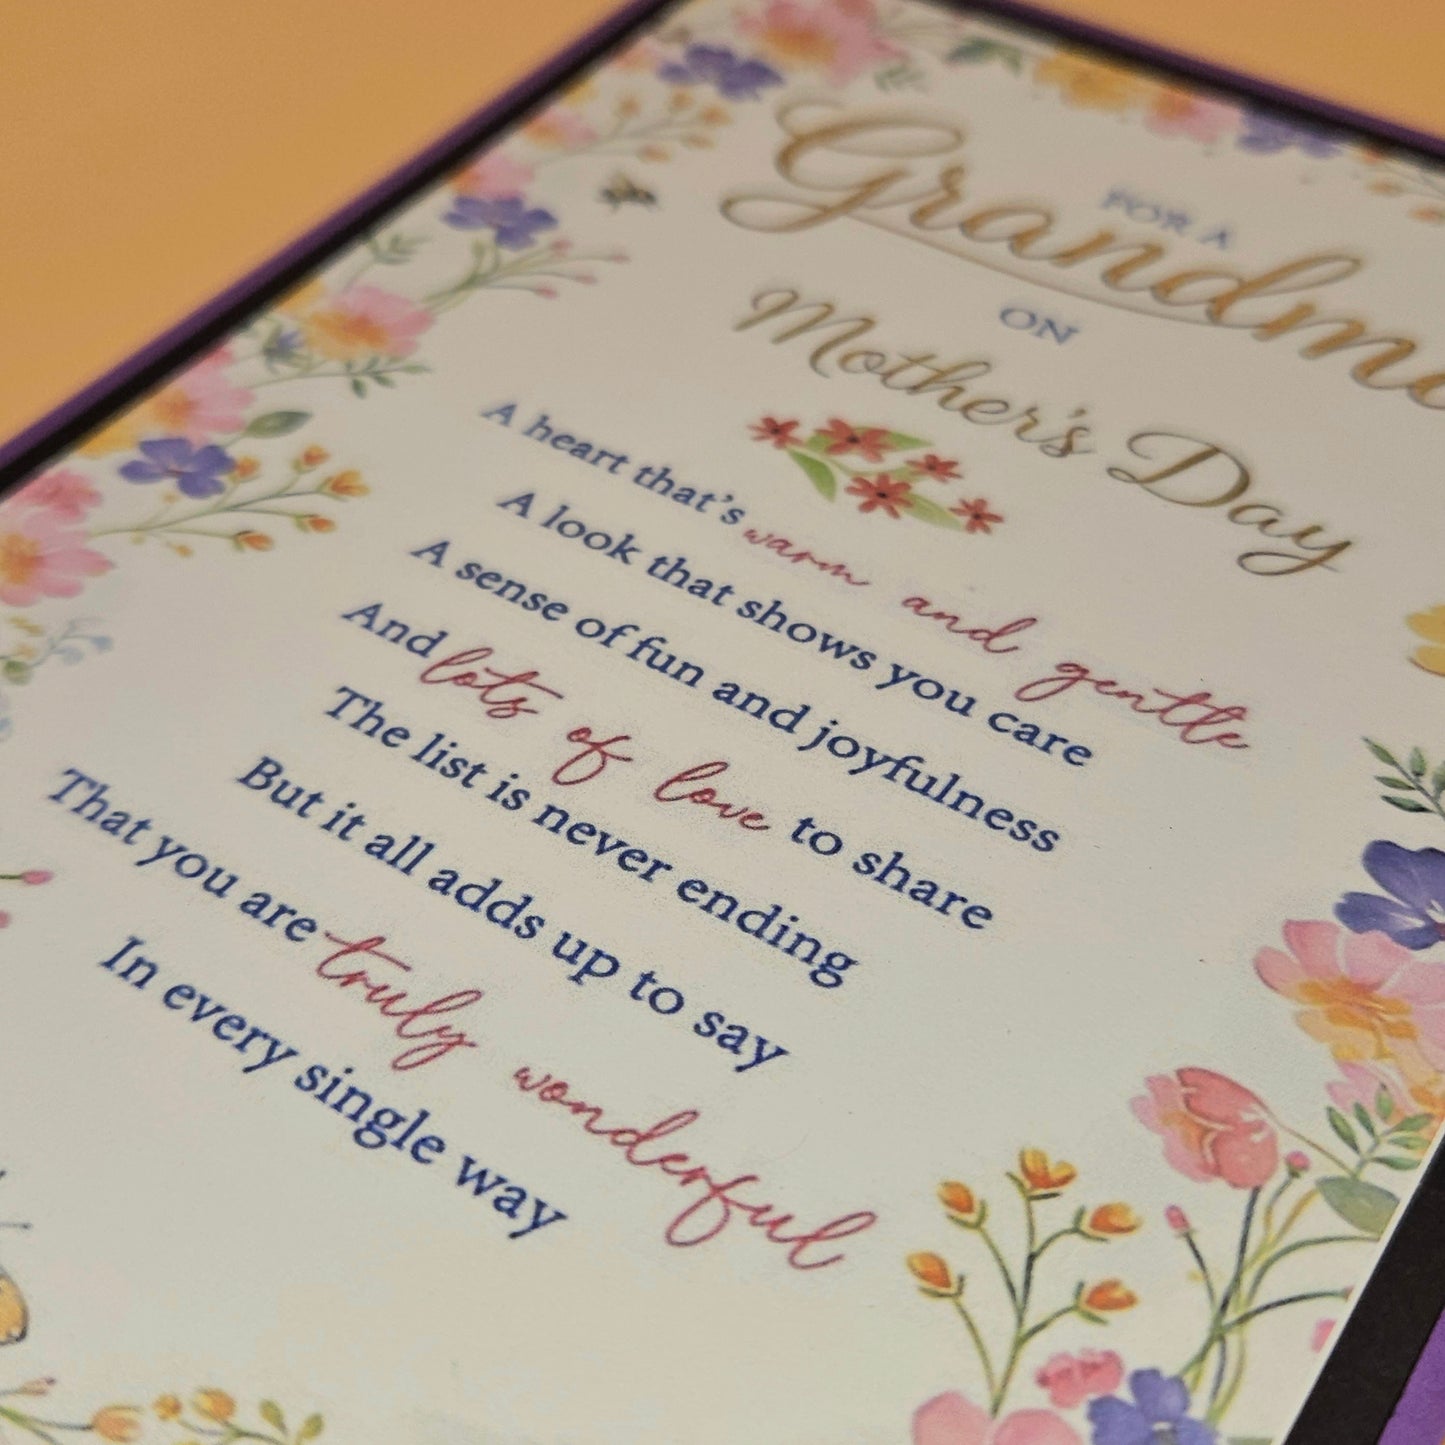 FOR A
Grandm
ON
Mother's Day
A heart that's warm and gentle
A look that shows you care
A sense of fun and joyfulness
And lots of love to share
The list is never ending
But it all adds up to say
That you are truly wonderful
In every single way